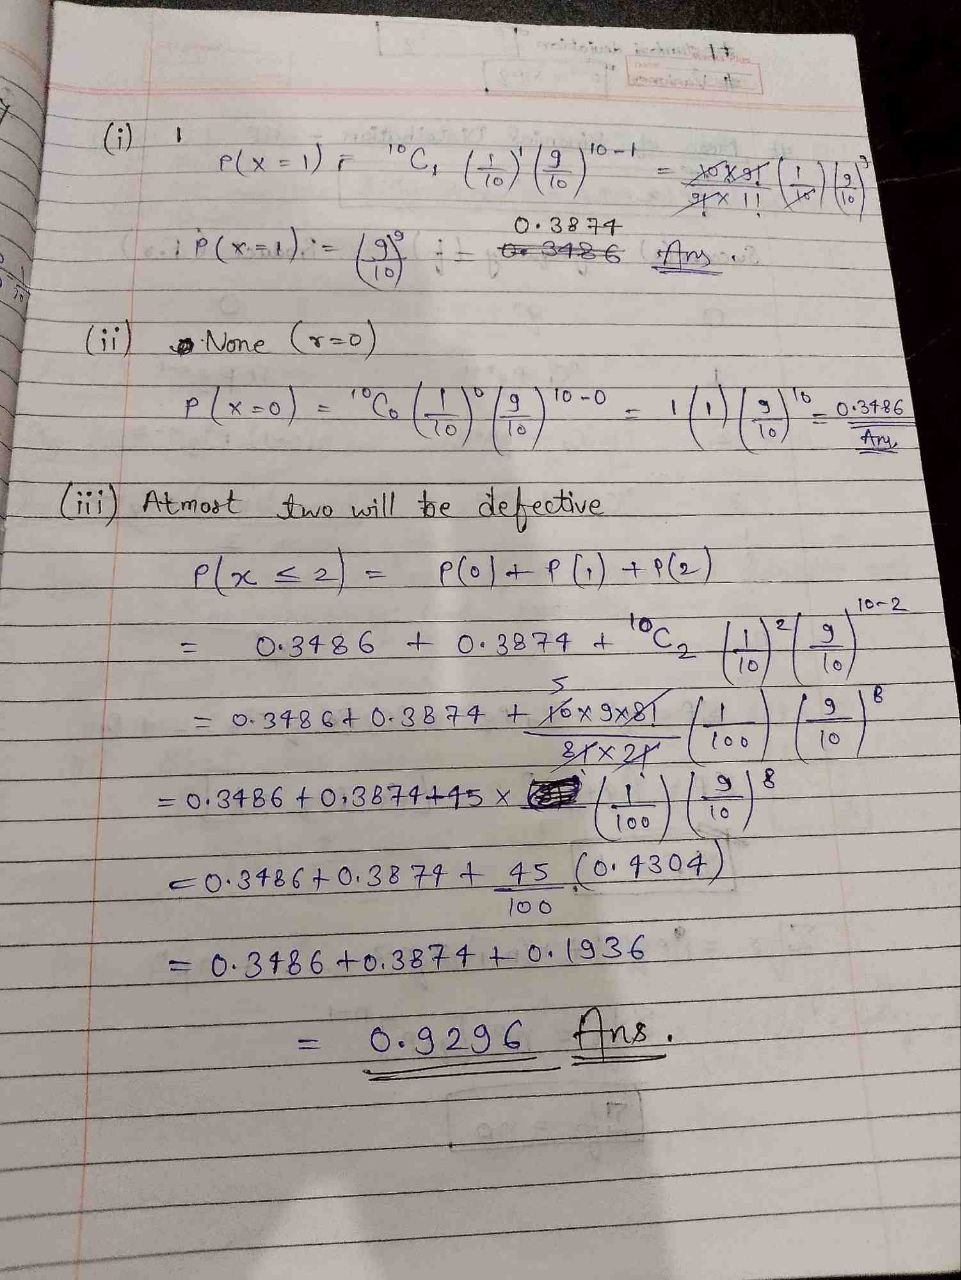 (i) 1
P(x = 1) = ¹⁰C₁ (1/10)¹ (9/10)¹⁰⁻¹ = 10×9!/9!×1! (1/10) (9/10)⁹
P(x=1) = (9/10)⁹ = 0.3874 Ans.
0.3486
(ii) None (r=0)
P(x=0) = ¹⁰C₀ (1/10)⁰ (9/10)¹⁰⁻⁰ = 1 (1) (9/10)¹⁰ = 0.3486
Ans
(iii) Atmost two will be defective
P(x ≤ 2) = P(0) + P(1) + P(2)
= 0.3486 + 0.3874 + ¹⁰C₂ (1/10)² (9/10)¹⁰⁻²
5
= 0.3486 + 0.3874 + 10×9×8!/8!×2! (1/100) (9/10)⁸
= 0.3486 + 0.3874 + 45 × (1/100) (9/10)⁸
= 0.3486 + 0.3874 + 45/100 (0.4304)
= 0.3486 + 0.3874 + 0.1936
= 0.9296 Ans.